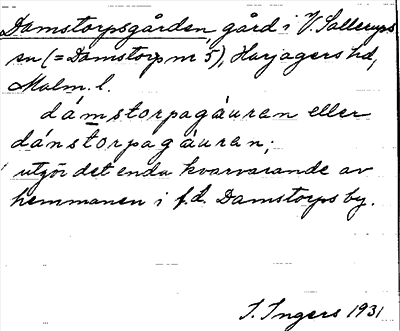 Damstorpsgården, gård i V. Sallerups
sn (= Damstorp nr 5), Harjagers hd,
Malm. l.
dámstorpagáuran eller
dánstorpagáuran;
utgör det enda kvarvarande av
hemmanen i f.d. Damstorps by.
I. Ingers 1931